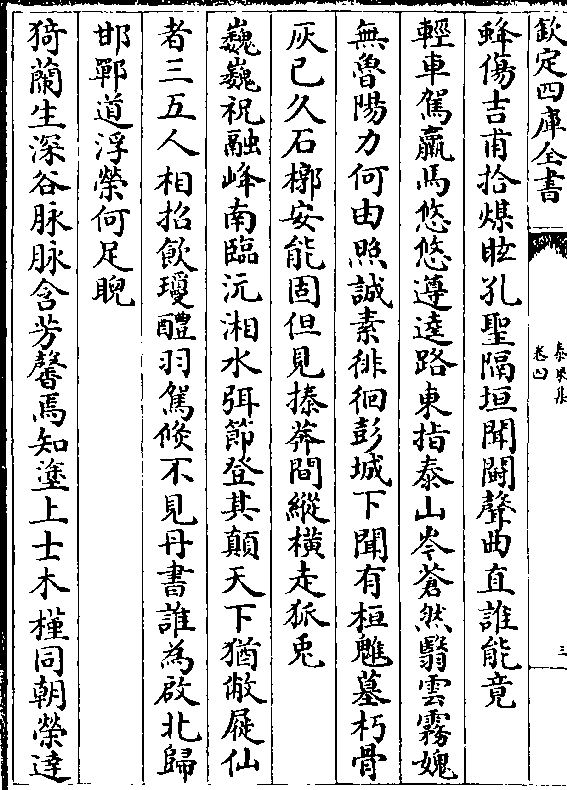 欽定四庫全書
泰泉集
卷四
三
蜂傷吉甫拾煤眩孔聖隔垣聞鬭聲曲直誰能竟
輕車駕羸馬悠悠遵逵路東指泰山岑蒼然翳雲霧媿
無魯陽力何由照誠素徘徊彭城下聞有桓魋墓朽骨
灰已久石槨安能固但見榛莽間縱橫走狐兎
巍巍祝融峰南臨沅湘水弭節登其顛天下猶敝屣仙
者三五人相招飲瓊醴羽駕倏不見丹書誰為啟北歸
邯鄲道浮榮何足睨
猗蘭生深谷脉脉含芳馨焉知塗上士木槿同朝榮達